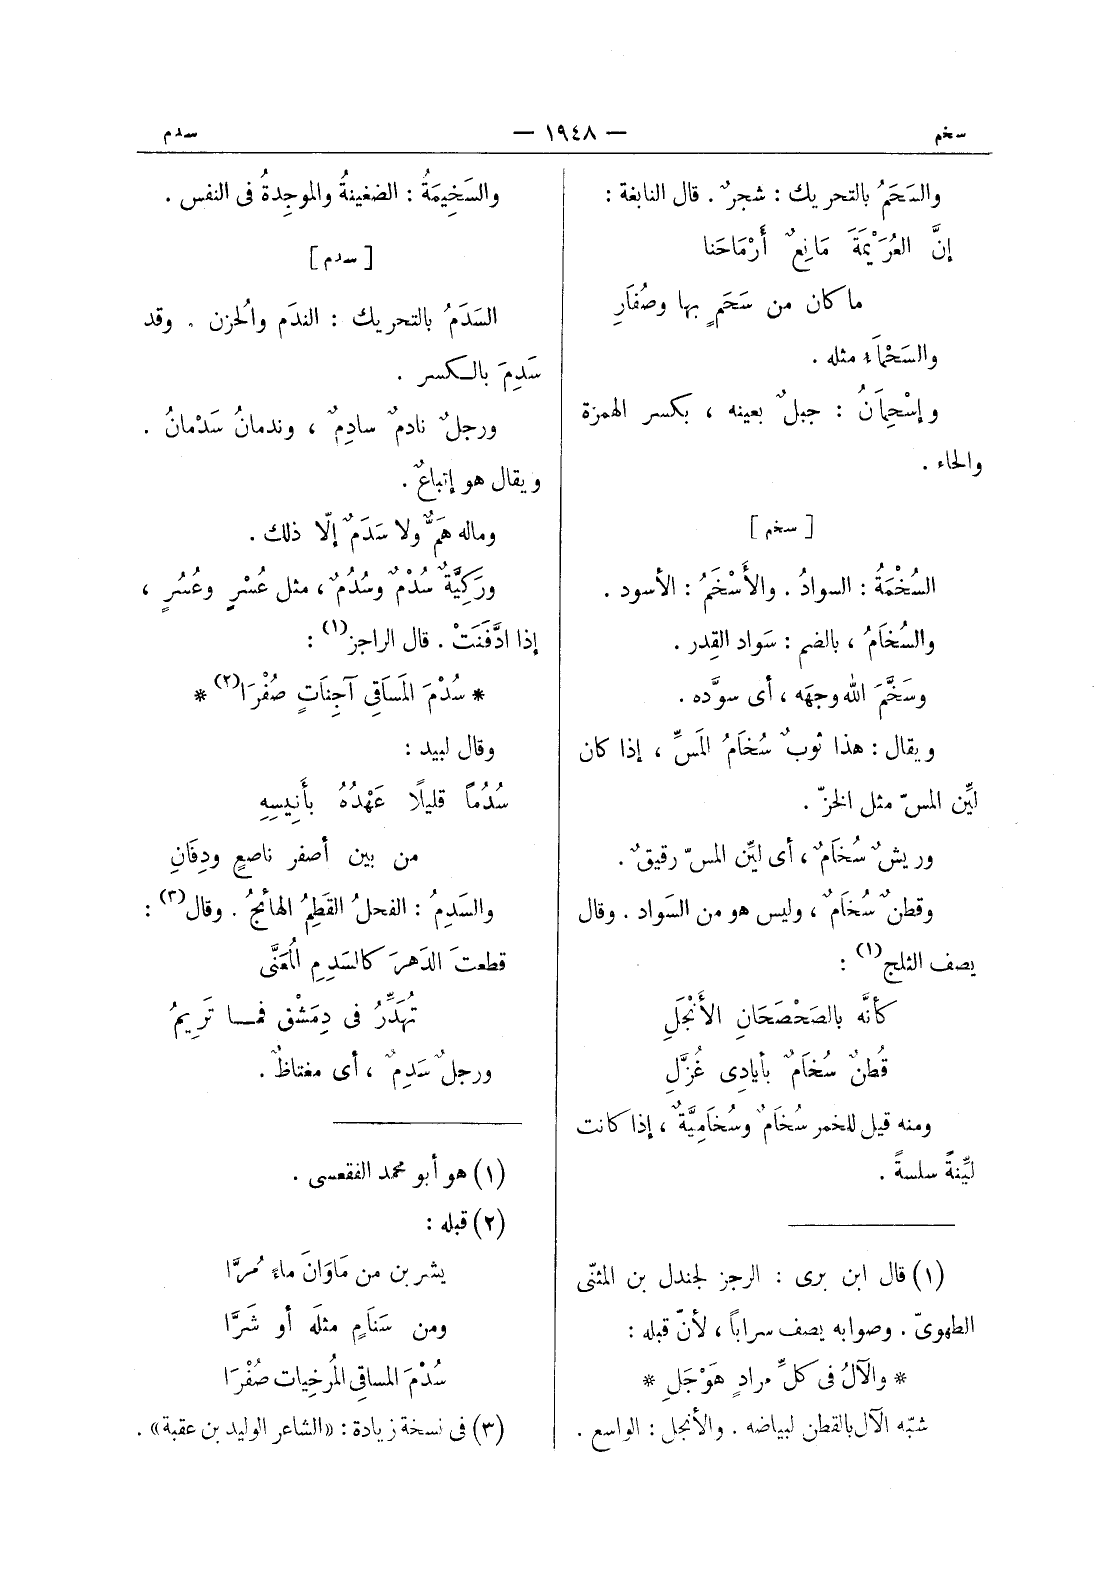 سخم
— ١٩٤٨ —
سدم
والسَحَمُ بالتحريك : شجرٌ . قال النابغة :
إنَّ العُرَيْمَةَ مَانِعٌ أَرْمَاحَنا
ما كان من سَحَمٍ بها وصُفَارِ
والسَحْمَاء مثله .
وإسْحِمَانُ : جبلٌ بعينه ، بكسر الهمزة
والحاء .
[ سخم ]
السُخْمَةُ : السوادُ . والأَسْخَمُ : الأسود .
والسُخَامُ ، بالضم : سَواد القِدر .
وسَخَّمَ الله وجهَه ، أى سوَّده .
ويقال : هذا ثوبٌ سُخَامُ المَسِّ ، إذا كان
ليِّن المسّ مثل الخزّ .
وريشٌ سُخَامٌ ، أى ليِّن المسّ رقيقٌ .
وقطنٌ سُخَامٌ ، وليس هو من السَواد . وقال
يصف الثلج(١) :
كأنَّه بالصَحْصَحَانِ الأَنْجَلِ
قُطنٌ سُخَامٌ بأيادِى غُزَّلِ
ومنه قيل للخمر سُخَامٌ وسُخَامِيَّةٌ ، إذا كانت
ليِّنةً سلسةً .
(١) قال ابن برى : الرجز لجندل بن المثنّى
الطهوىّ . وصوابه يصف سراباً ، لأنّ قبله :
* والآلُ فى كلِّ مرادٍ هَوْجَلِ *
شبّه الآل بالقطن لبياضه . والأنجل : الواسع .
والسَخِيمَةُ : الضغينةُ والموجِدةُ فى النفس .
[ سدم ]
السَدَمُ بالتحريك : الندَم والحُزن . وقد
سَدِمَ بالكسر .
ورجلٌ نادمٌ سادِمٌ ، وندمانُ سَدْمانُ .
ويقال هو إتباعٌ .
وماله هَمٌّ ولا سَدَمٌ إلّا ذلك .
ورَكِيَّةٌ سُدْمٌ وسُدُمٌ ، مثل عُسْرٍ وعُسُرٍ ،
إذا ادَّفَنَتْ . قال الراجز(١) :
* سُدْمَ المَسَاقِى آجِنَاتٍ صُفْرَا(٢) *
وقال لبيد :
سُدُماً قليلًا عَهْدُهُ بأَنِيسِهِ
من بين أصفر ناصعٍ ودِفَانِ
والسَدِمُ : الفحلُ القَطِمُ الهائجُ . وقال(٣) :
قطعتَ الدَهرَ كالسَدِمِ المُعَنَّى
تُهَدِّرُ فى دِمَشْق فمـا تَرِيمُ
ورجلٌ سَدِمٌ ، أى مغتاظٌ .
(١) هو أبو محمد الفقعسى .
(٢) قبله :
يشربن من مَاوَانَ ماءً مُرَّا
ومن سَنَامٍ مثلَه أو شَرَّا
سُدْمَ المساقِى المُرخيات صُفْرَا
(٣) فى نسخة زيادة : «الشاعر الوليد بن عقبة» .